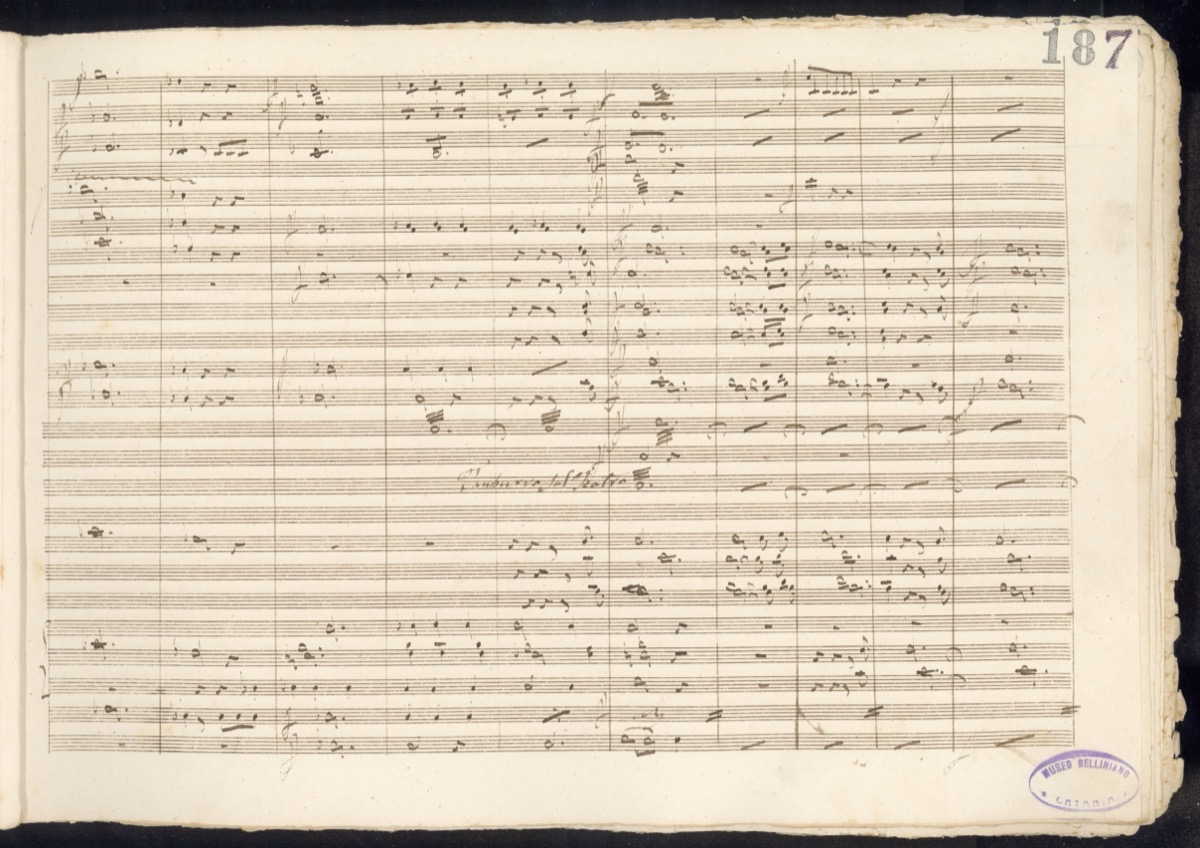 187
Tamburro sul Palco
MUSEO BELLINIANO
CATANIA